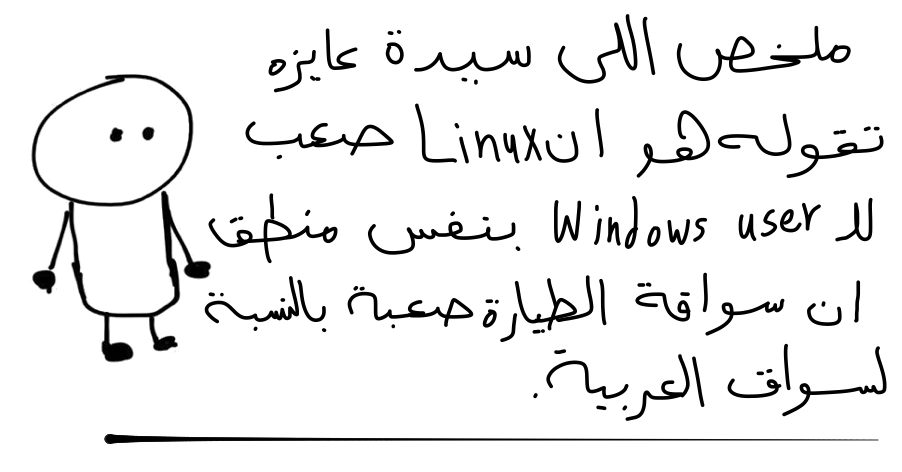 ملخص اللى سيدة عايزه
تقوله هو ان Linux صعب
لل Windows user بنفس منطق
ان سواقة الطيارة صعبة بالنسبة
لسواق العربية.